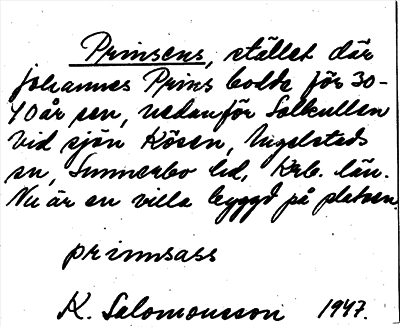 Prinsens, stället där
Johannes Prins bodde för 30-
40 år sen, nedanför Solkullen
vid sjön Kösen, Ingelstads
sn, Sunnerbo hd, Krb. län.
Nu är en villa byggd på platsen.
prinnsass
K. Salomonsson 1947.